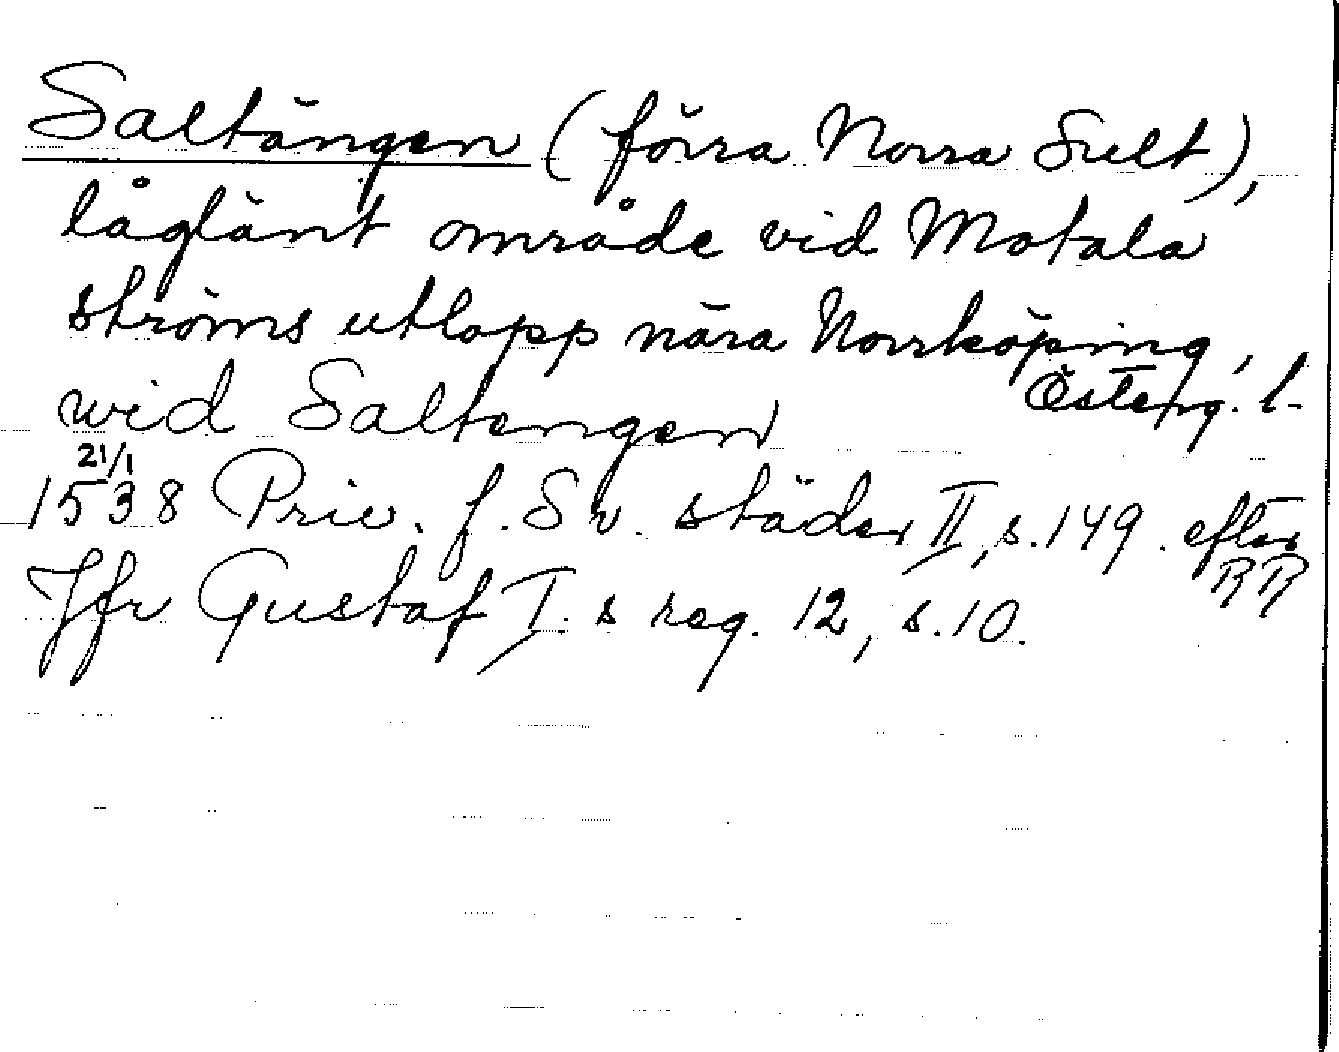 Saltängen (förra Norra Sult),
låglänt område vid Motala
ströms utlopp nära Norrköping,
Österg. l.
wid Saltengen
21/1
1538 Priv. f. Sv. städer II, s. 149. efter
RR
Jfr Gustaf I. s reg. 12, s. 10.